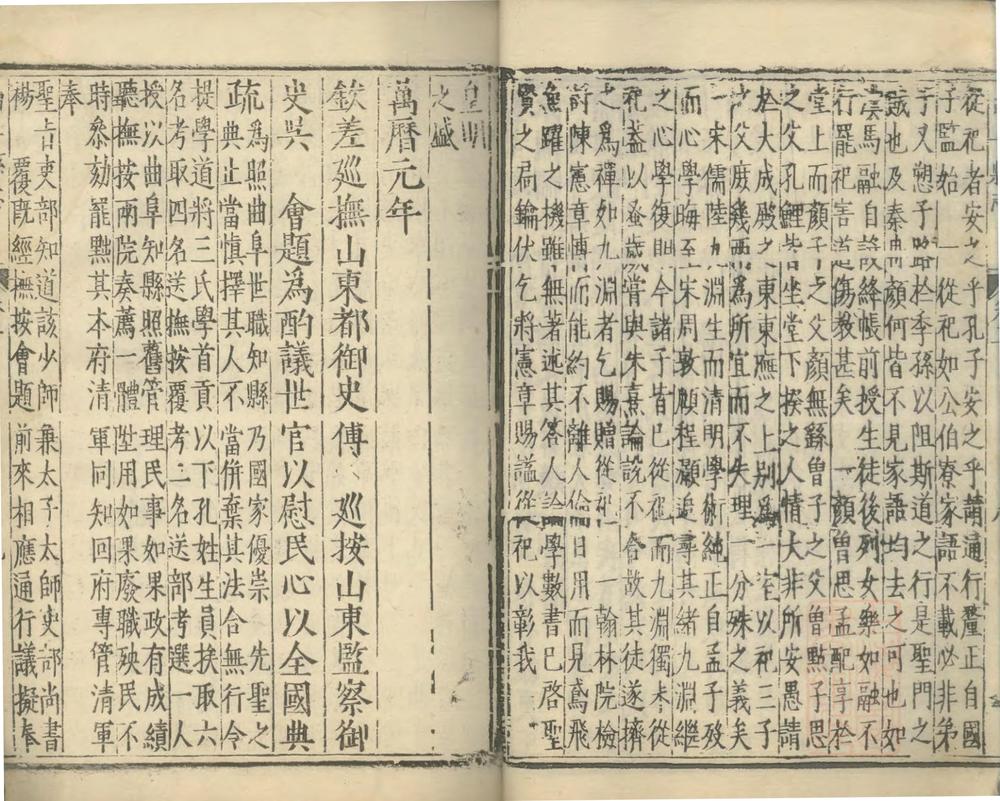 從祀者安之乎孔子安之乎請通行釐正自國
子監始 一從祀如公伯寮家語不載必非弟
子又愬子路於季孫以阻斯道之行是聖門之
也及秦冉顏何皆不見家語均去之可也如
漢馬融自設絳帳前授生徒後列女樂如融不
行罷祀害道傷教甚矣 一顏曾思孟配享於
堂上而顏子之父顏無繇曾子之父曾點子思
之父孔鯉皆坐堂下揆之人情大非所安愚請
於大成殿之東東廡之上別爲一室以祀三子
之父庶幾兩爲所宜而不失理一分殊之義矣
一宋儒陸九淵生而清明學術純正自孟子歿
而心學晦至宋周敦頤程灝追尋其緒九淵繼
之心學復明今諸子皆已從祀而九淵獨未從
祀蓋以蚤歲嘗與朱熹論說不合故其徒遂擠
之爲禪如九淵者乞賜贈從祀 一翰林院檢
討陳憲章博而能約不離人倫日用而見鳶飛
魚躍之機雖無著述其答人論學數書已啓聖
賢之扃鑰伏乞將憲章賜謚從祀以彰我
皇明
之盛
萬曆元年
欽差巡撫山東都御史傅、巡按山東監察御
史吳 會題爲酌議世官以慰民心以全國典
疏爲照曲阜世職知縣乃國家優崇 先聖之
典止當慎擇其人不當併棄其法合無行令
提學道將三氏學首貢以下孔姓生員挨取六
名考取四名送撫按覆考二名送部考選一人
授以曲阜知縣照舊管理民事如果政有成績
聽撫按兩院奏薦一體陞用如果廢職殃民不
時叅劾罷黜其本府清軍同知回府專管清軍
奉
聖旨吏部知道該少師兼太子太師吏部尚書
楊 覆既經撫按會題前來相應通行議擬奉